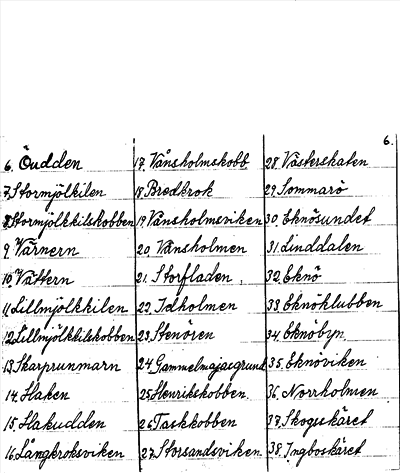 6.
6. Öudden
7. Stormjölkilen
8. Stormjölkkilskobben
9. Värnern
10. Vättern
11. Lillmjölkkilen
12. Lillmjölkkilskobben
13. Skarprunmarn
14. Haken
15. Hakudden
16. Långkroksviken
17. Vånsholmskobb
18. Bredkrok
19. Vånsholmsviken
20. Vånsholmen
21. Storfladen
22. Idholmen
23. Stenören
24. Gammelmajasgrund
25. Henrikskobben
26. Taskkobben
27. Storsandsviken
28. Västerskaten
29. Sommarö
30. Eknösundet
31. Linddalen
32. Eknö
33. Eknöklubben
34. Eknöbyn
35. Eknöviken
36. Norrholmen
37. Skogsskäret
38. Ingboskäret